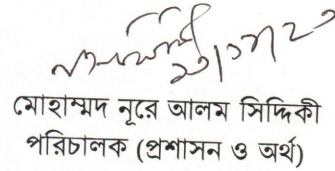 মোহাম্মদ নূরে আলম সিদ্দিকী
পরিচালক (প্রশাসন ও অর্থ)